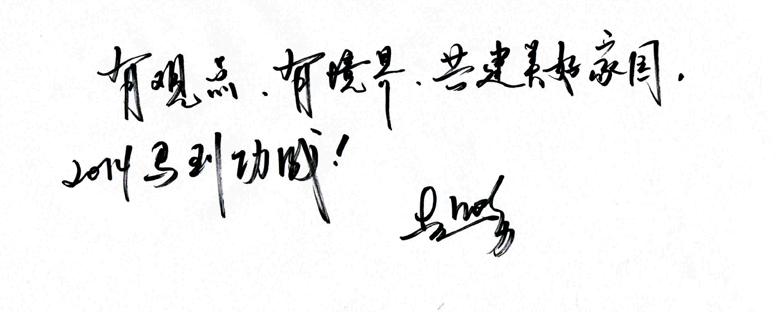 有观点、有境界、共建美好家园.
2014马到功成！